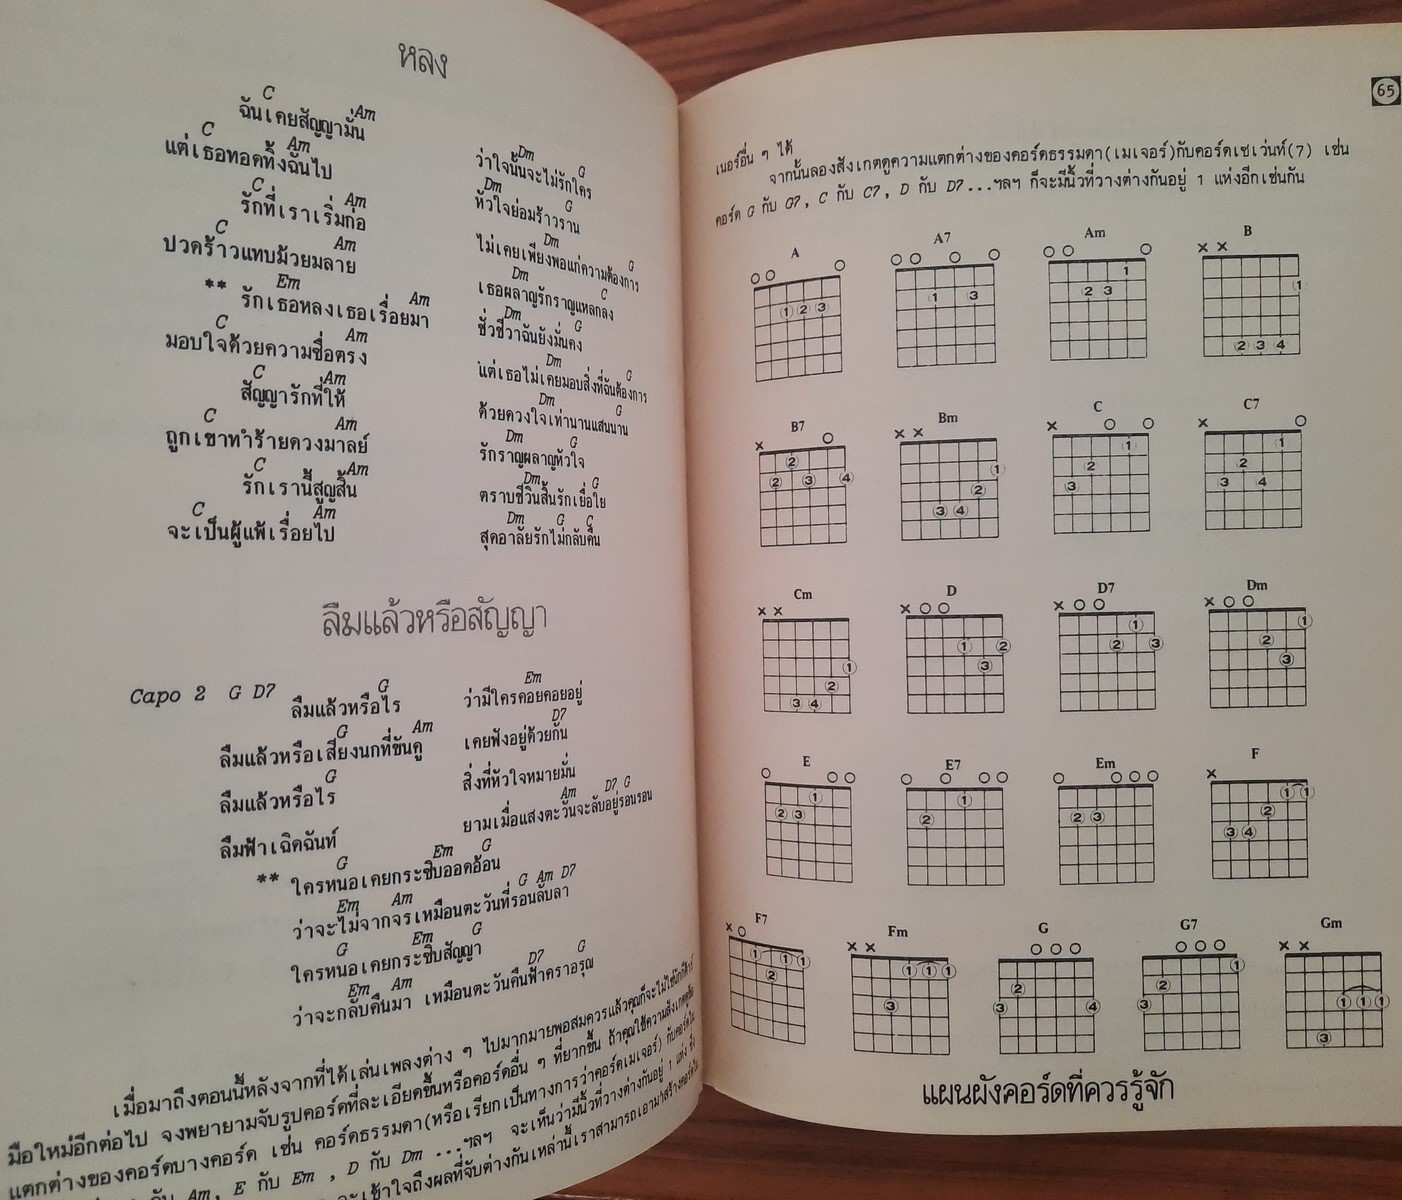 หลง
C Am
ฉันเคยสัญญามั่น
Dm G
ว่าใจนั้นจะไม่รักใคร
C Am
แต่เธอทอดทิ้งฉันไป
Dm G
หัวใจย่อมร้าวราน
C Am
รักที่เราเริ่มก่อ
Dm G
ไม่เคยเพียงพอแก่ความต้องการ
C Am
ปวดร้าวแทบม้วยมลาย
Dm C
เธอผลาญรักราญแหลกลง
Em Am
** รักเธอหลงเธอเรื่อยมา
Dm G
ชั่วชีวาฉันยังมั่นคง
C Am
มอบใจด้วยความซื่อตรง
Dm G
แต่เธอไม่เคยมอบสิ่งที่ฉันต้องการ
C Am
สัญญารักที่ให้
Dm G
ด้วยดวงใจเท่านานแสนนาน
C Am
ถูกเขาทำร้ายดวงมาลย์
Dm G
รักราญผลาญหัวใจ
C Am
รักเรานี้สูญสิ้น
Dm G
ตราบชีวินสิ้นรักเยื่อใย
C Am
จะเป็นผู้แพ้เรื่อยไป
Dm G C
สุดอาลัยรักไม่กลับคืน
ลืมแล้วหรือสัญญา
Capo 2 G D7
G
ลืมแล้วหรือไร
Em
ว่ามีใครคอยคอยอยู่
G Am
ลืมแล้วหรือเสียงนกที่ขันคู
D7
เคยฟังอยู่ด้วยกัน
G
ลืมแล้วหรือไร
สิ่งที่หัวใจหมายมั่น
ลืมฟ้าเฉิดฉันท์
Am D7 G
ยามเมื่อแสงตะวันจะลับอยู่รอนรอน
G Em G
** ใครหนอเคยกระซิบออดอ้อน
Em Am G Am D7
ว่าจะไม่จากจรเหมือนตะวันที่รอนลับลา
G Em G
ใครหนอเคยกระซิบสัญญา
Em Am D7 G
ว่าจะกลับคืนมา เหมือนตะวันคืนฟ้าคราอรุณ
เมื่อมาถึงตอนนี้หลังจากที่ได้เล่นเพลงต่าง ๆ ไปมากมายพอสมควรแล้วคุณก็จะไม่ใช่นักกีต้าร์
มือใหม่อีกต่อไป จงพยายามจับรูปคอร์ดที่ละเอียดขึ้นหรือคอร์ดอื่น ๆ ที่ยากขึ้น ถ้าคุณใช้ความสังเกตดูข้อ
แตกต่างของคอร์ดบางคอร์ด เช่น คอร์ดธรรมดา(หรือเรียกเป็นทางการว่าคอร์ดเมเจอร์) กับคอร์ดไม
กับ Am, E กับ Em , D กับ Dm ...ฯลฯ จะเห็นว่ามีนิ้วที่วางต่างกันอยู่ 1 แห่ง ซึ่ง
จะเข้าใจถึงผลที่จับต่างกันเหล่านี้เราสามารถเอามาสร้างคอร์ดไม
65
เนอร์อื่น ๆ ได้
จากนั้นลองสังเกตดูความแตกต่างของคอร์ดธรรมดา(เมเจอร์)กับคอร์ดเซเว่นท์(7) เช่น
คอร์ด G กับ G7, C กับ C7, D กับ D7...ฯลฯ ก็จะมีนิ้วที่วางต่างกันอยู่ 1 แห่งอีกเช่นกัน
A A7 Am B
B7 Bm C C7
Cm D D7 Dm
E E7 Em F
F7 Fm G G7 Gm
แผนผังคอร์ดที่ควรรู้จัก